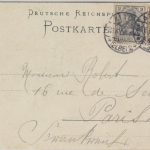 DEUTSCHE REICHSPOST
POSTKARTE
Monsieur Robert
16 rue de
Paris
Frankreich